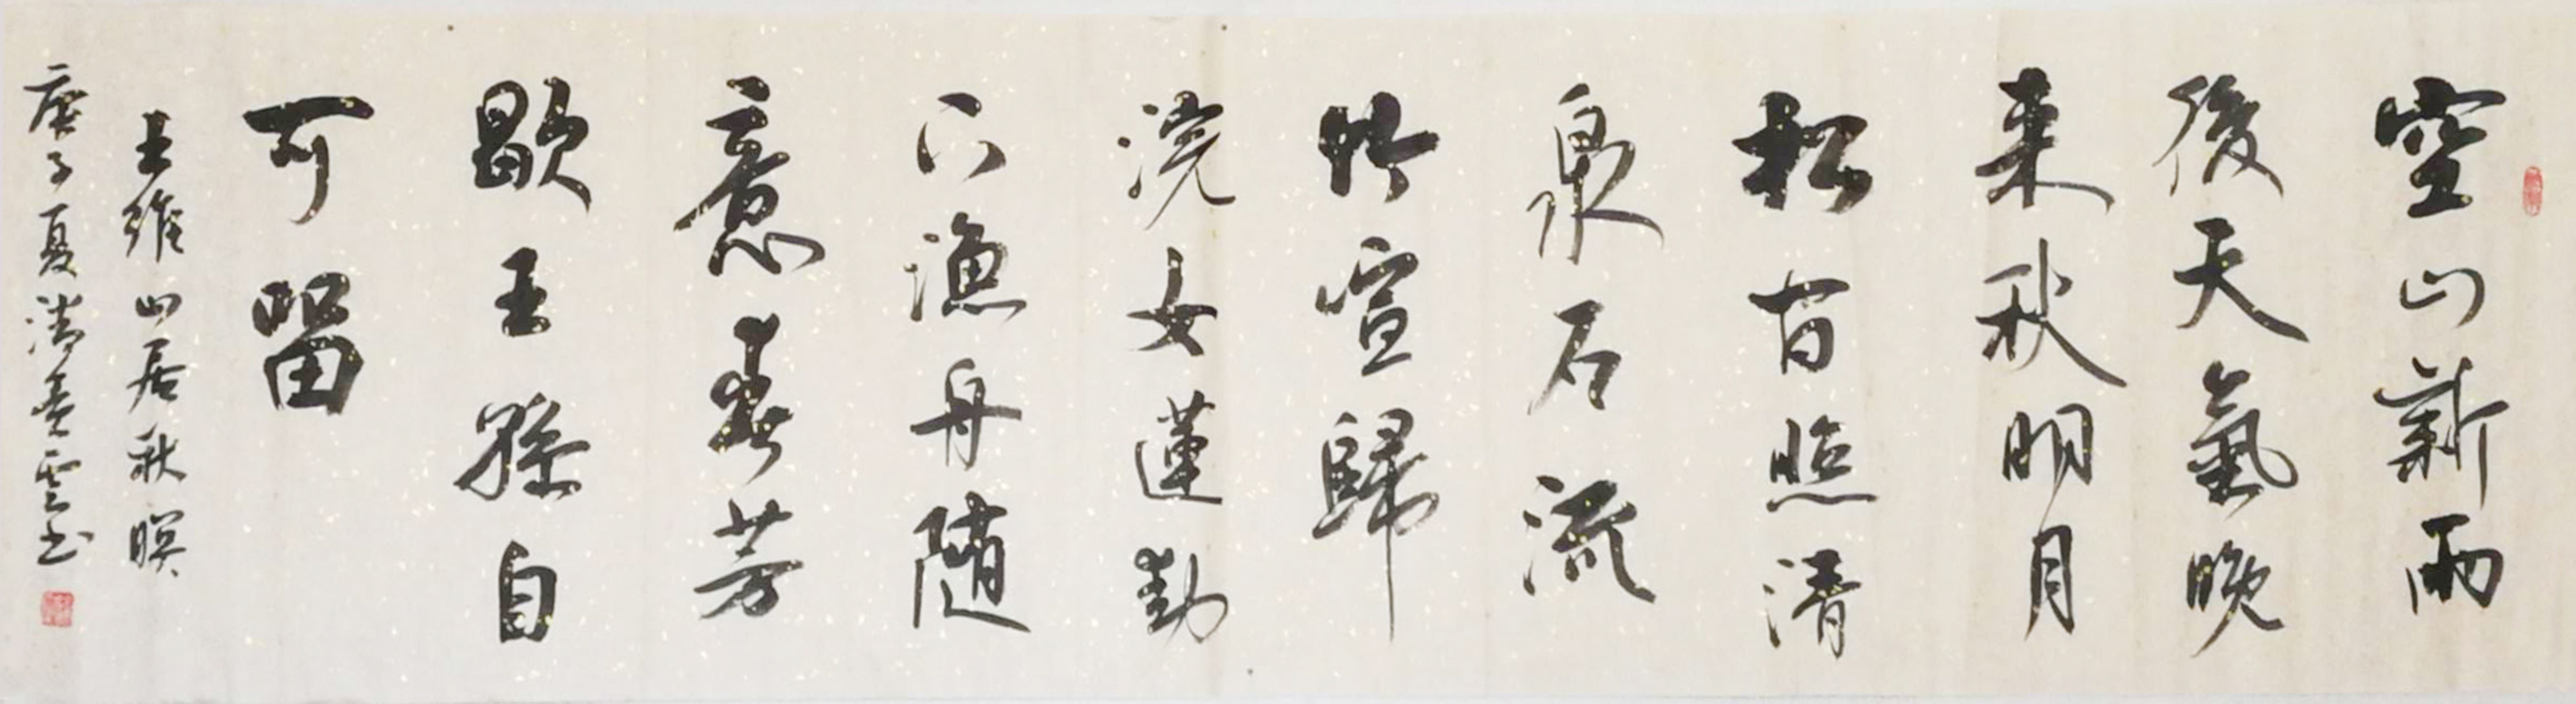 空山新雨
後天氣晚
来秋明月
松間照清
泉石流
竹喧歸
浣女蓮動
下漁舟隨
意春芳
歇王孫自
可留
王維山居秋暝
庚子夏雲书